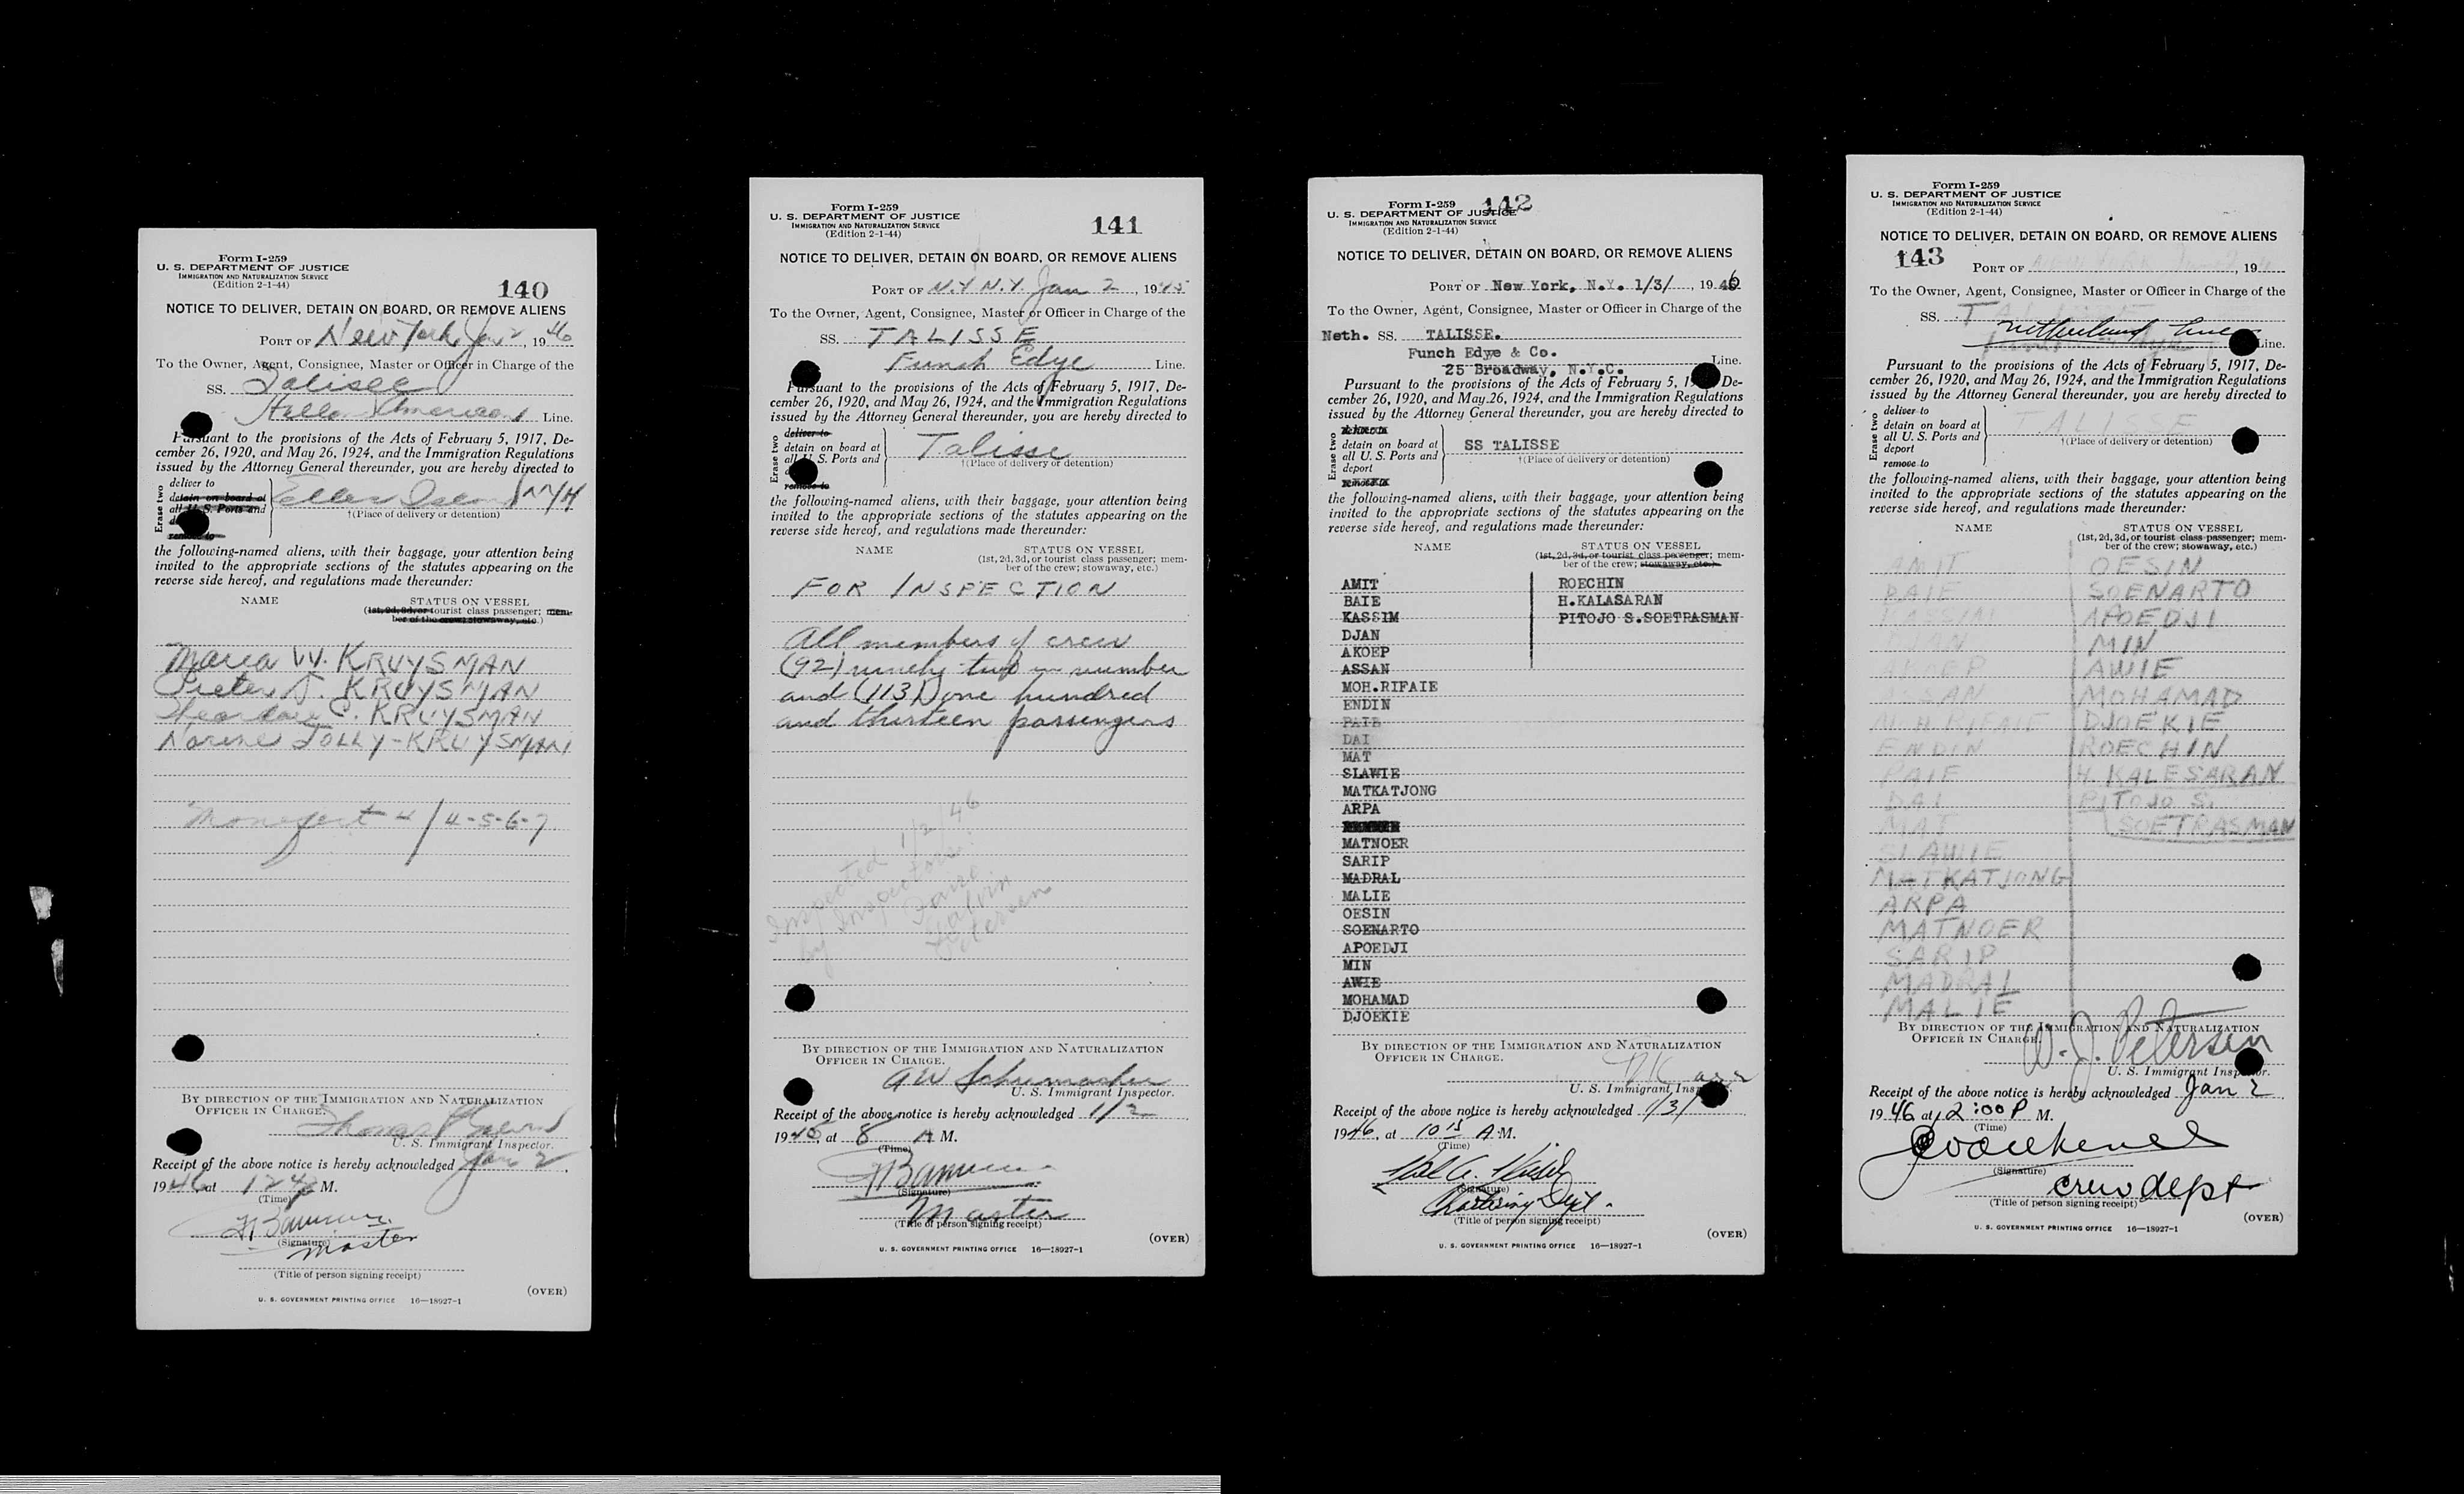 Form I-259
U. S. DEPARTMENT OF JUSTICE
IMMIGRATION AND NATURALIZATION SERVICE
(Edition 2-1-44)
140
NOTICE TO DELIVER, DETAIN ON BOARD, OR REMOVE ALIENS
PORT OF New York, Jan 2, 1946
To the Owner, Agent, Consignee, Master or Officer in Charge of the
SS. Talisee
American Line.
Pursuant to the provisions of the Acts of February 5, 1917, De-
cember 26, 1920, and May 26, 1924, and the Immigration Regulations
issued by the Attorney General thereunder, you are hereby directed to
Erase two
deliver to
detain on board at
all U. S. Ports and
remove to
†(Place of delivery or detention)
the following-named aliens, with their baggage, your attention being
invited to the appropriate sections of the statutes appearing on the
reverse side hereof, and regulations made thereunder:
NAME STATUS ON VESSEL
(1st, 2d, 3d, or tourist class passenger; mem-
ber of the crew; stowaway, etc.)
Maria W. KRUYSMAN
Pieter KRUYSMAN
KRUYSMAN
JOLLY-KRUYSMAN
4/4-5-6-7
BY DIRECTION OF THE IMMIGRATION AND NATURALIZATION
OFFICER IN CHARGE.
Thomas
U. S. Immigrant Inspector.
Receipt of the above notice is hereby acknowledged Jan 2,
1946 at M.
(Time)
(Signature)
master
(Title of person signing receipt)
(OVER)
U. S. GOVERNMENT PRINTING OFFICE 16—18927-1
Form I-259
U. S. DEPARTMENT OF JUSTICE
IMMIGRATION AND NATURALIZATION SERVICE
(Edition 2-1-44)
141
NOTICE TO DELIVER, DETAIN ON BOARD, OR REMOVE ALIENS
PORT OF N.Y. N.Y. Jan 2, 1945
To the Owner, Agent, Consignee, Master or Officer in Charge of the
SS. TALISSE
Funch Edye Line.
Pursuant to the provisions of the Acts of February 5, 1917, De-
cember 26, 1920, and May 26, 1924, and the Immigration Regulations
issued by the Attorney General thereunder, you are hereby directed to
Erase two
deliver to
detain on board at
all U. S. Ports and
remove to
Talisse
†(Place of delivery or detention)
the following-named aliens, with their baggage, your attention being
invited to the appropriate sections of the statutes appearing on the
reverse side hereof, and regulations made thereunder:
NAME STATUS ON VESSEL
(1st, 2d, 3d, or tourist class passenger; mem-
ber of the crew; stowaway, etc.)
FOR INSPECTION
All members of crew
(92) ninety two in number
and (113) one hundred
and thirteen passengers
Inspected 1/2/46
by Inspectors:
Galvin
Petersen
BY DIRECTION OF THE IMMIGRATION AND NATURALIZATION
OFFICER IN CHARGE.
AW Schumacher
U. S. Immigrant Inspector.
Receipt of the above notice is hereby acknowledged 1/2,
1945, at 8 A M.
(Time)
(Signature)
Master
(Title of person signing receipt)
(OVER)
U. S. GOVERNMENT PRINTING OFFICE 16—18927-1
Form I-259
U. S. DEPARTMENT OF JUSTICE
IMMIGRATION AND NATURALIZATION SERVICE
(Edition 2-1-44)
142
NOTICE TO DELIVER, DETAIN ON BOARD, OR REMOVE ALIENS
PORT OF New York, N.Y. 1/3/, 1946
To the Owner, Agent, Consignee, Master or Officer in Charge of the
Neth. SS. TALISSE.
Funch Edye & Co.
25 Broadway, N.Y.C. Line.
Pursuant to the provisions of the Acts of February 5, 1917, De-
cember 26, 1920, and May 26, 1924, and the Immigration Regulations
issued by the Attorney General thereunder, you are hereby directed to
Erase two
detain on board at
all U. S. Ports and
deport
SS TALISSE
†(Place of delivery or detention)
the following-named aliens, with their baggage, your attention being
invited to the appropriate sections of the statutes appearing on the
reverse side hereof, and regulations made thereunder:
NAME STATUS ON VESSEL
(1st, 2d, 3d, or tourist class passenger; mem-
ber of the crew; stowaway, etc.)
AMIT ROECHIN
BAIE H.KALASARAN
KASSIM PITOJO S.SOETRASMAN
DJAN
AKOEP
ASSAN
MOH.RIFAIE
ENDIN
PAIE
DAI
MAT
SLAWIE
MATKATJONG
ARPA
MATNOER
SARIP
MADRAL
MALIE
OESIN
SOENARTO
APOEDJI
MIN
AWIE
MOHAMAD
DJOEKIE
BY DIRECTION OF THE IMMIGRATION AND NATURALIZATION
OFFICER IN CHARGE.
U. S. Immigrant Inspector.
Receipt of the above notice is hereby acknowledged 1/3/
1946, at 10 15 A M.
(Time)
(Signature)
Dept.
(Title of person signing receipt)
(OVER)
U. S. GOVERNMENT PRINTING OFFICE 16—18927-1
Form I-259
U. S. DEPARTMENT OF JUSTICE
IMMIGRATION AND NATURALIZATION SERVICE
(Edition 2-1-44)
NOTICE TO DELIVER, DETAIN ON BOARD, OR REMOVE ALIENS
143
PORT OF , 19
To the Owner, Agent, Consignee, Master or Officer in Charge of the
SS. TALISSE
Netherland Line.
Pursuant to the provisions of the Acts of February 5, 1917, De-
cember 26, 1920, and May 26, 1924, and the Immigration Regulations
issued by the Attorney General thereunder, you are hereby directed to
Erase two
deliver to
detain on board at
all U. S. Ports and
deport
remove to
TALISSE
†(Place of delivery or detention)
the following-named aliens, with their baggage, your attention being
invited to the appropriate sections of the statutes appearing on the
reverse side hereof, and regulations made thereunder:
NAME STATUS ON VESSEL
(1st, 2d, 3d, or tourist class passenger; mem-
ber of the crew; stowaway, etc.)
AMIT OESIN
BAIE SOENARTO
KASSIM APOEDJI
DJAN MIN
AKOEP AWIE
ASSAN MOHAMAD
MOH RIFAIE DJOEKIE
ENDIN ROECHIN
PAIE H. KALESARAN
DAI PITOJO S.
MAT SOETRASMAN
SLAWIE
MATKATJONG
ARPA
MATNOER
SARIP
MADRAL
MALIE
BY DIRECTION OF THE IMMIGRATION AND NATURALIZATION
OFFICER IN CHARGE.
W. J. Petersen
U. S. Immigrant Inspector.
Receipt of the above notice is hereby acknowledged Jan 2,
1946 at 2:00 P M.
(Time)
(Signature)
crew dept
(Title of person signing receipt)
(OVER)
U. S. GOVERNMENT PRINTING OFFICE 16—18927-1